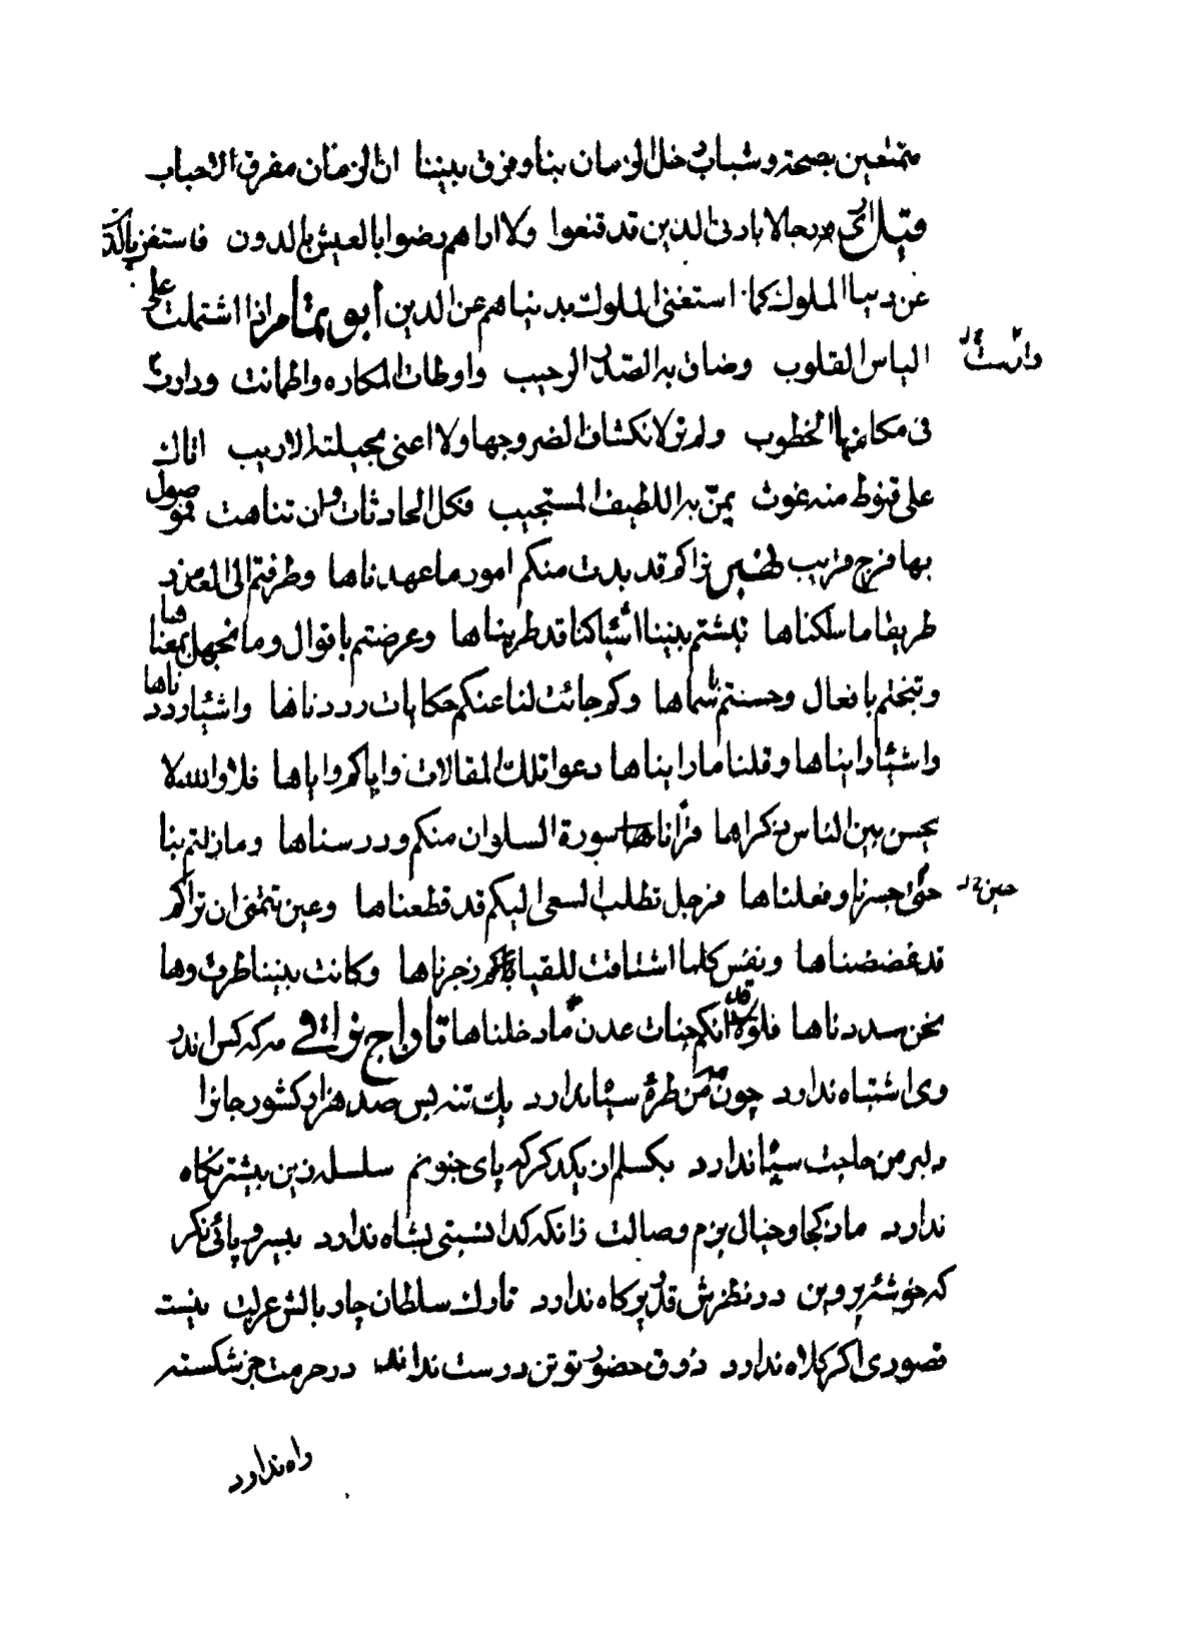 متمتعین بصحة وشباب دخل الزمان بنا وفرق بیننا ان الزمان مفرق الاحباب
قیل اری رجالا بادنی الدین قد قنعوا ولا اراهم رضوا بالعیش بالدون فاستغن بالدین
عن دنیا الملوک کما استغنی الملوک بدنیاهم عن الدین ابو تمام اذا اشتملت علی
الیاس القلوب وضاق به الصدر الرحیب واوطات المکاره واطمانت ودارت
وارست
فی مکامنها الخطوب ولم تر لانکشاف الضر وجها ولا اغنی بحیلته الاریب اتاک
علی قنوط منه غوث یمن به اللطیف المستجیب فکل الحادثات وان تناهت فموصول
بها فرج قریب لغیره نراکم قد بدت منکم امور ما عهدناها وطرقتم الی الغدر
طریقا ما سلکناها نبشتم بیننا اشیا کنا قد طویناها وعرضتم باقوال وما نجهل معناها
وقبحتم بافعال وحسنتم ... وکم جائت لنا عنکم حکایات رددناها واشیا رددناها
واشیا رایناها وقلنا ما رایناها دعوا تلک المقالات وایاکم وایاها فلا والله لا
یحسن بین الناس ذکراها قرانا سورة السلوان منکم ودرسناها وما زلتم بنا
حتی جسرنا وفعلناها فرجل تطلب السعی الیکم قد قطعناها وعین تتمنی ان تراکم
حین
قد غضضناها ونفس کلما اشتاقت للقیاکم زجرناها وکانت بیننا طرق وها
نحن سددناها فلو انکم جنات عدن ما دخلناها قاواج نراقی هر که کس اندر
وی اشتباه ندارد چون من طره سیاه ندارد یک تنه بس صد هزار کشور جانرا
دلبر من حاجت سپاه ندارد بکسلم ان یکدکر که پای جنونم سلسله زین بیشتر نکاه
ندارد ما ز کجا و خیال بزم وصالت زانکه کدا نسبتی بشاه ندارد بیسر و پائی نکر
که خوشه پروین در نظرش قدر پر کاه ندارد تارک سلطان چار بالش عزلت نیست
قصوری اکر کلاه ندارد ذوق حضور تو تن درست نداند در حرمت جز شکسته
راه ندارد